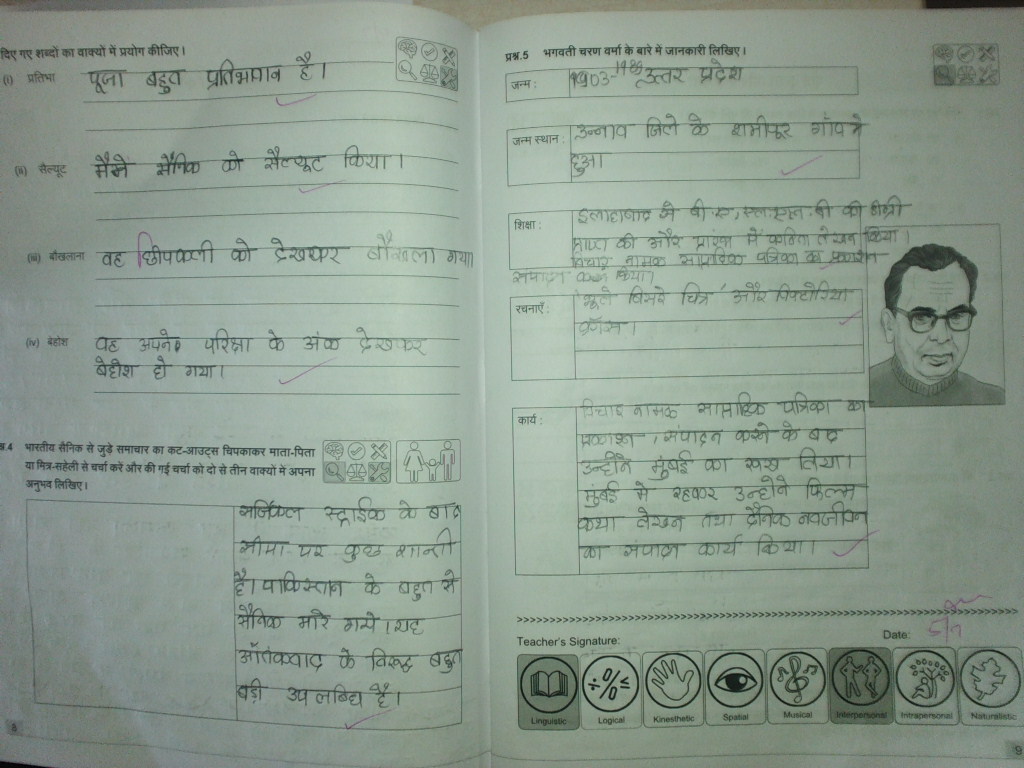 दिए गए शब्दों का वाक्यों में प्रयोग कीजिए।
(i) प्रतिभा पूजा बहुत प्रतिभावान है।
(ii) सैल्यूट मैंने सैनिक को सैल्यूट किया।
(iii) बौखलाना वह छिपकली को देखकर बौखला गया।
(iv) बेहोश वह अपने परिक्षा के अंक देखकर
बेहोश हो गया।
प्र.4 भारतीय सैनिक से जुड़े समाचार का कट-आउट्स चिपकाकर माता-पिता
या मित्र-सहेली से चर्चा करें और की गई चर्चा को दो से तीन वाक्यों में अपना
अनुभव लिखिए।
सर्जिकल स्ट्राईक के बाद
सीमा पर कुछ शान्ती
है। पाकिस्तान के बहुत से
सैनिक मारे गये। यह
आंतकवाद के विरुद्ध बहुत
बड़ी उपलब्धि है।
8
प्रश्न.5 भगवती चरण वर्मा के बारे में जानकारी लिखिए।
जन्म : 1903- उत्तर प्रदेश
जन्म स्थान : उन्नाव जिले के शफीपुर गाँव में
हुआ।
शिक्षा : इलाहाबाद से बी.ए, एल.एल.बी की डीग्री
प्राप्त की और प्रारंभ में कविता लेखन किया।
विचार नामक साप्ताहिक पत्रिका का प्रकाशन
संपादन किया।
रचनाएँ : 'भूले बिसरे चित्र' और
कार्य : विचार नामक साप्ताहिक पत्रिका का
प्रकाशन, संपादन करने के बाद
उन्होंने मुंबई का रुख लिया।
मुंबई में रहकर उन्होंने फिल्म
कथा लेखन तथा दैनिक नवजीवन
का संपादन कार्य किया।
Teacher's Signature: Date: 5/9
Linguistic Logical Kinesthetic Spatial Musical Interpersonal Intrapersonal Naturalistic
9